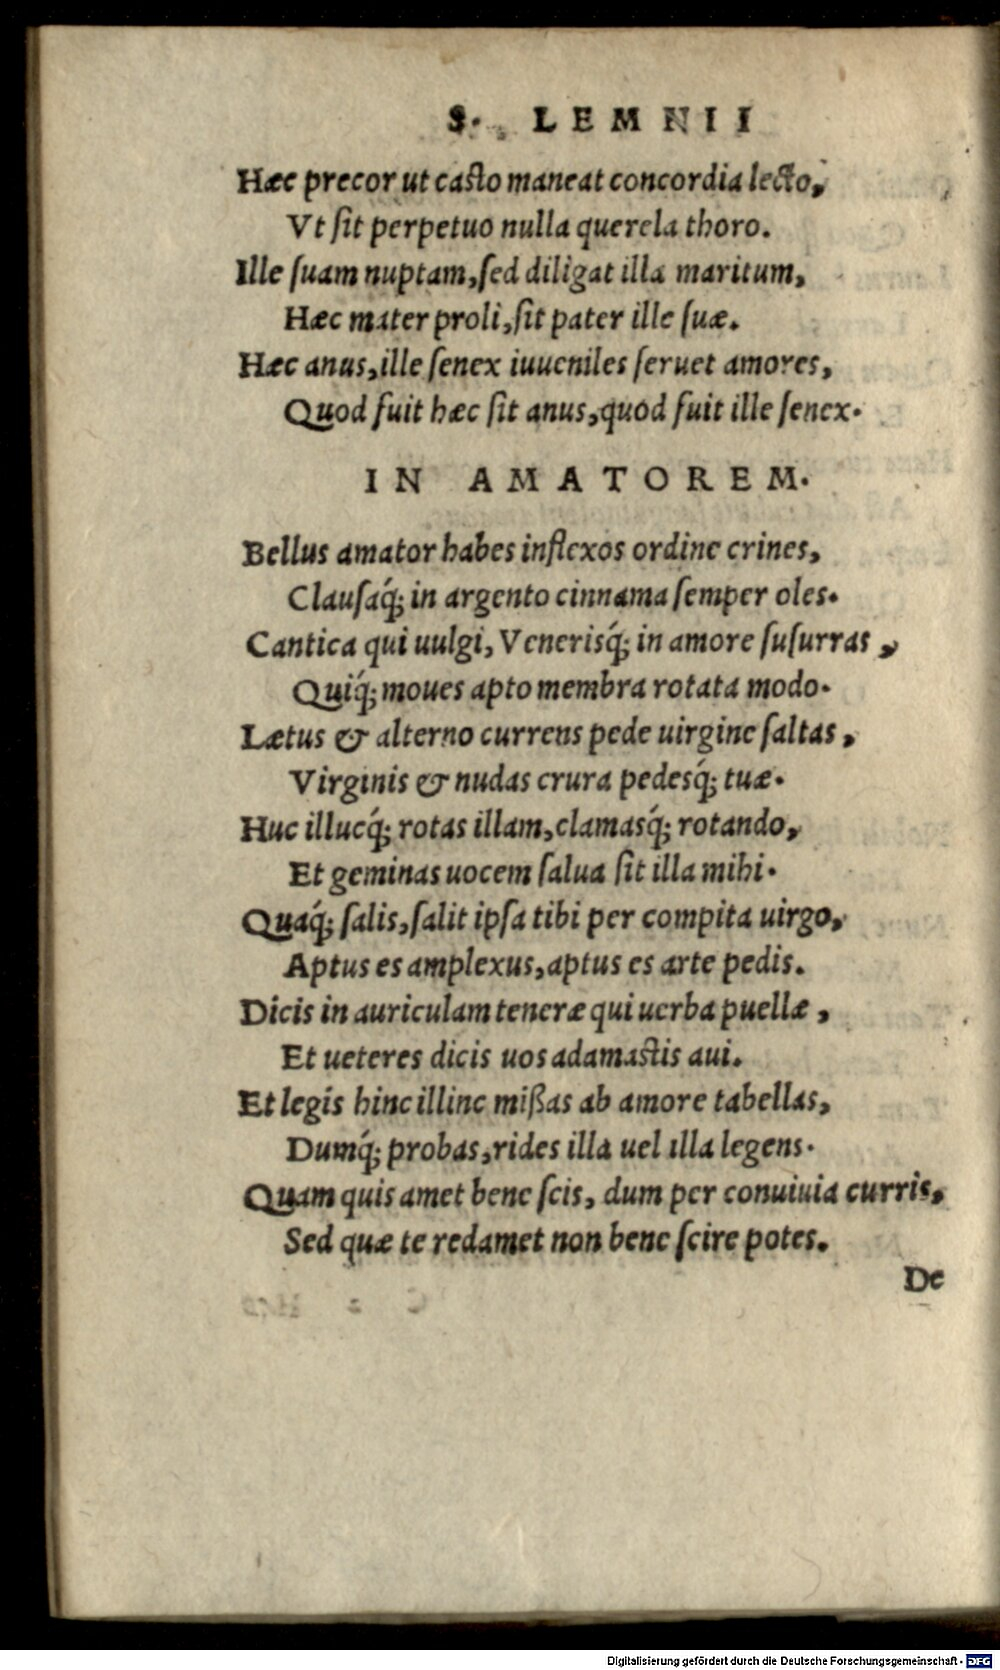 S. LEMNII
Hæc precor ut casto maneat concordia lecto,
Vt sit perpetuo nulla querela thoro.
Ille suam nuptam, sed diligat illa maritum,
Hæc mater proli, sit pater ille suæ.
Hæc anus, ille senex iuueniles seruet amores,
Quod fuit hæc sit anus, quod fuit ille senex.
IN AMATOREM.
Bellus amator habes inflexos ordine crines,
Clausaq́; in argento cinnama semper oles.
Cantica qui uulgi, Venerisq́; in amore susurras,
Quiq́; moues apto membra rotata modo.
Lætus & alterno currens pede uirgine saltas,
Virginis & nudas crura pedesq́; tuæ.
Huc illucq́; rotas illam, clamasq́; rotando,
Et geminas uocem salua sit illa mihi.
Quaq́; salis, salit ipsa tibi per compita uirgo,
Aptus es amplexus, aptus es arte pedis.
Dicis in auriculam teneræ qui uerba puellæ,
Et ueteres dicis uos adamastis aui.
Et legis hinc illinc mißas ab amore tabellas,
Dumq́; probas, rides illa uel illa legens.
Quam quis amet bene scis, dum per conuiuia curris,
Sed quæ te redamet non bene scire potes.
De
Digitalisierung gefördert durch die Deutsche Forschungsgemeinschaft - DFG